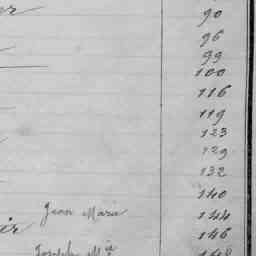 90
96
99
100
116
119
123
129
132
140
Jean Marie 144
146
Joseph Mie 148